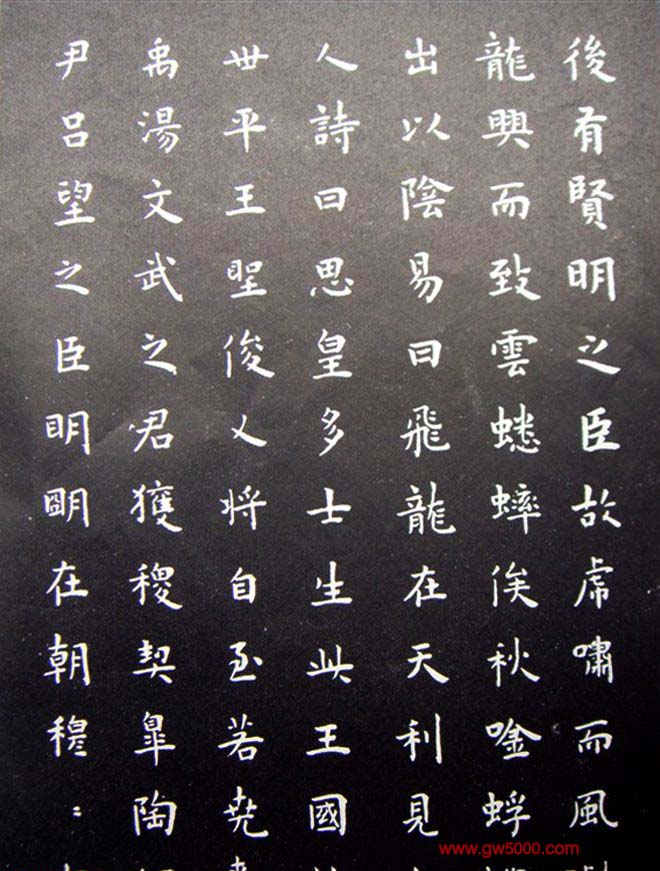 後有賢明之臣故虎嘯而風
龍興而致雲蟋蟀俟秋唫蜉
出以陰易曰飛龍在天利見
人詩曰思皇多士生此王國
世平王聖俊乂将自至若堯
禹湯文武之君獲稷契皋陶
尹呂望之臣明明在朝穆〻
www.gw5000.com